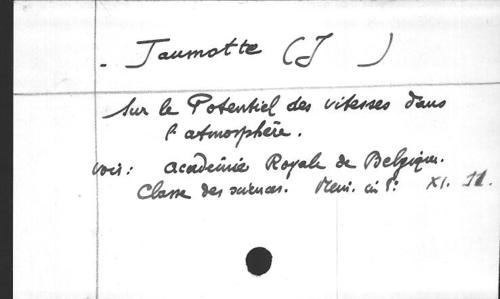 Jaumotte (J )
Sur le Potentiel des vitesses dans
l'atmosphère.
voir: Académie Royale de Belgique.
Classe des sciences. Mem. in 8: XI. 11.